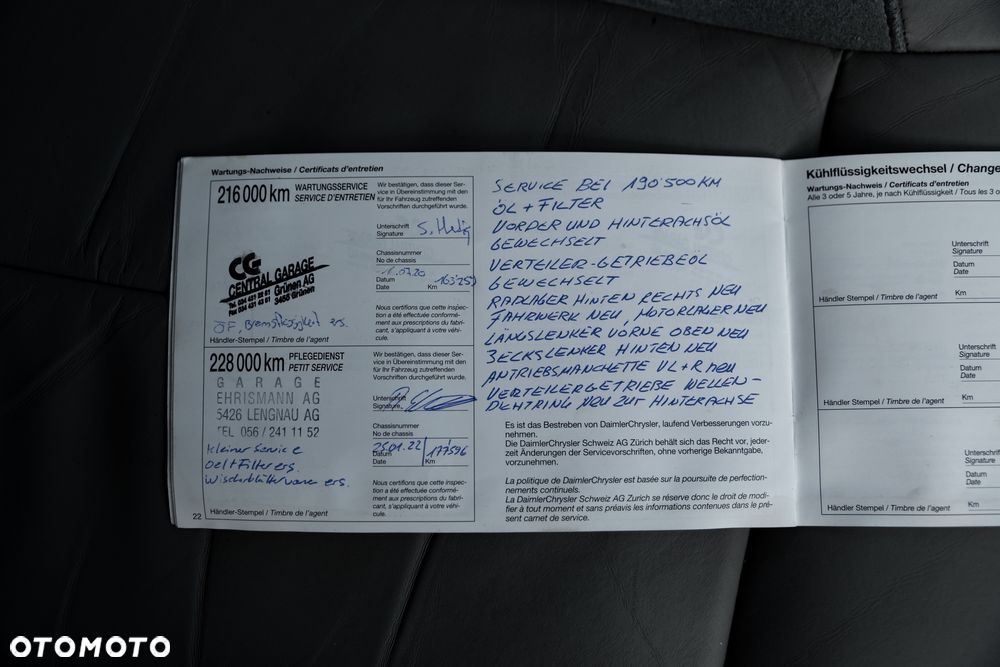 Wartungs-Nachweise / Certificats d'entretien
216 000 km WARTUNGSSERVICE
SERVICE D'ENTRETIEN
Wir bestätigen, dass dieser Ser-
vice in Übereinstimmung mit den
für Ihr Fahrzeug zutreffenden
Vorschriften durchgeführt wurde.
Unterschrift
Signature
Chassisnummer
No de chassis
.07.20
Datum
Date
Km
Nous certifions que cette inspec-
tion a été effectuée conformé-
ment aux prescriptions du fabri-
cant, s'appliquant à votre véhi-
cule.
CG
CENTRAL GARAGE
Grünen AG
3455 Grünen
ÖF, Bremsflüssigkeit ers.
Händler-Stempel / Timbre de l'agent
228 000 km PFLEGEDIENST
PETIT SERVICE
Wir bestätigen, dass dieser Ser-
vice in Übereinstimmung mit den
für Ihr Fahrzeug zutreffenden
Vorschriften durchgeführt wurde.
GARAGE
EHRISMANN AG
5426 LENGNAU AG
TEL 056 / 241 11 52
Unterschrift
Signature
Chassisnummer
No de chassis
25.01.22 177'596
Datum
Date
Km
kleiner Service
Oel + Filter ers.
Wischerblätter vorne ers.
Nous certifions que cette inspec-
tion a été effectuée conformé-
ment aux prescriptions du fabri-
cant, s'appliquant à votre véhi-
cule.
Händler-Stempel / Timbre de l'agent
22
SERVICE BEI 190'500 KM
ÖL + FILTER
VORDER UND HINTERACHSÖL
GEWECHSELT
VERTEILER-GETRIEBEÖL
GEWECHSELT
RADLAGER HINTEN RECHTS NEU
FAHRWERK NEU, MOTORLAGER NEU
LÄNGSLENKER VORNE OBEN NEU
3ECKSLENKER HINTEN NEU
ANTRIEBSMANCHETTE VL + R neu
VERTEILERGETRIEBE WELLEN-
DICHTRING NEU ZUR HINTERACHSE
Es ist das Bestreben von DaimlerChrysler, laufend Verbesserungen vorzu-
nehmen.
Die DaimlerChrysler Schweiz AG Zürich behält sich das Recht vor, jeder-
zeit Änderungen der Servicevorschriften, ohne vorherige Bekanntgabe,
vorzunehmen.
La politique de DaimlerChrysler est basée sur la poursuite de perfection-
nements continuels.
La DaimlerChrysler Schweiz AG Zurich se réserve donc le droit de modi-
fier à tout moment et sans préavis les informations contenues dans le pré-
sent carnet de service.
Kühlflüssigkeitswechsel / Change
Wartungs-Nachweis / Certificats d'entretien
Alle 3 oder 5 Jahre, je nach Kühlflüssigkeit / Tous les 3 o
Unterschrift
Signature
Datum
Date
Km
Händler Stempel / Timbre de l'agent
Unterschrift
Signature
Datum
Date
Km
Händler-Stempel / Timbre de l'agent
Unterschrif
Signature
Datum
Date
Km
Händler-Stempel / Timbre de l'agent
OTOMOTO